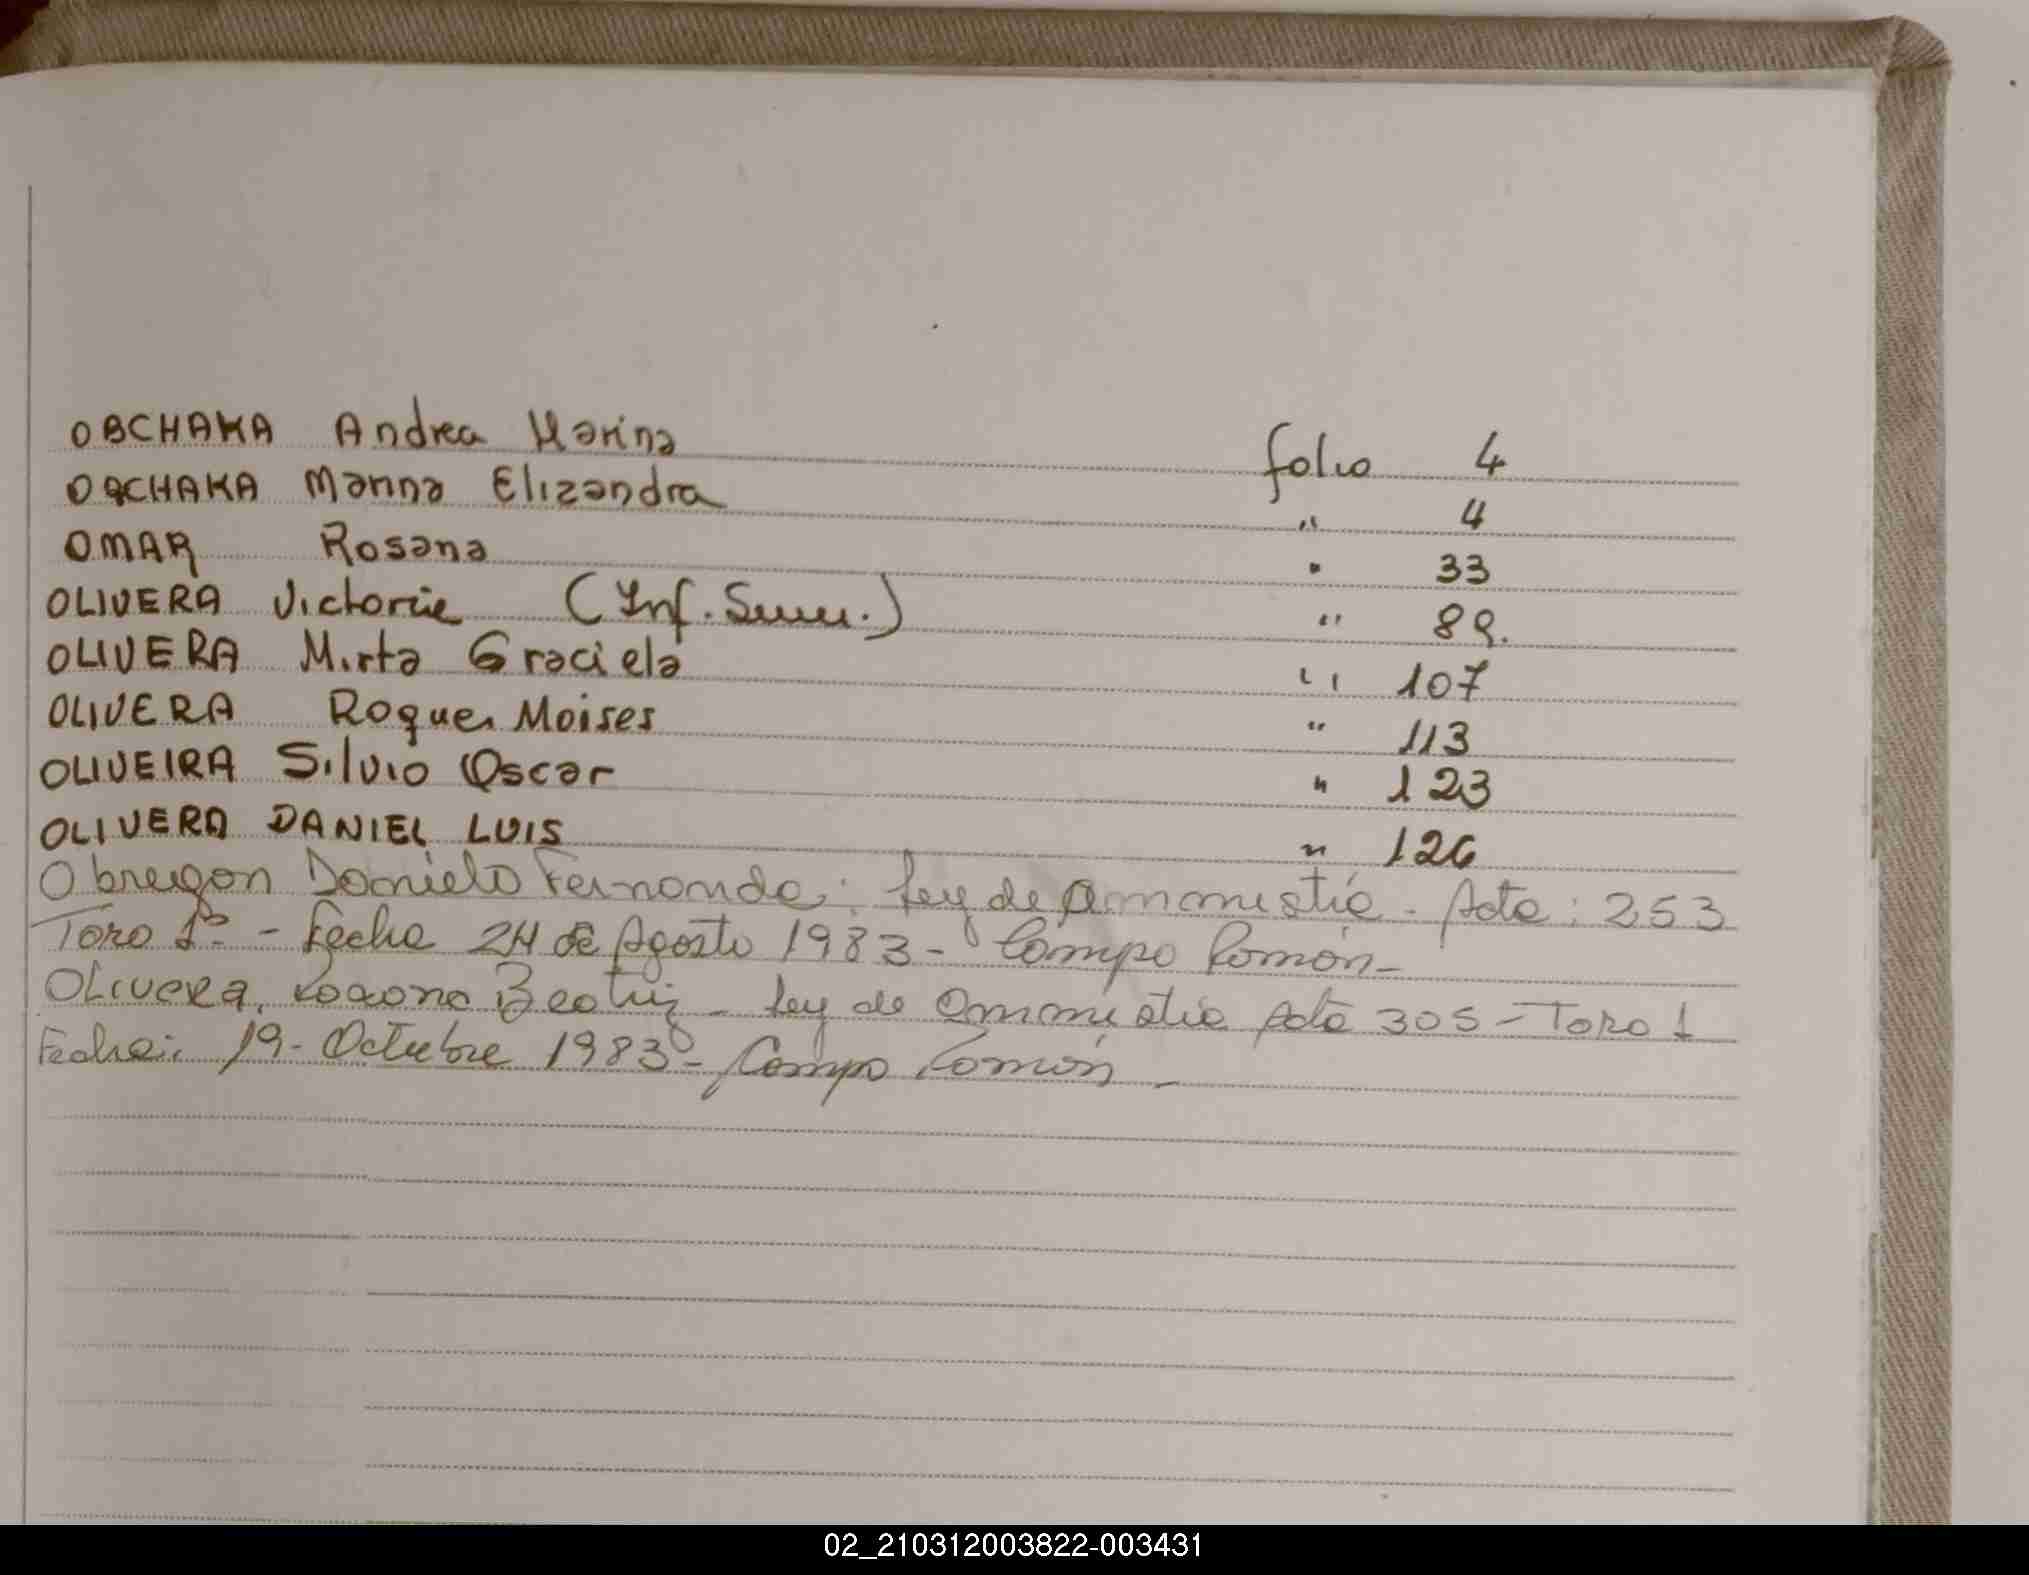 OBCHAKA Andrea Marina folio 4
OBCHAKA Marina Elizandra " 4
OMAR Rosana " 33
OLIVERA Victoria (Inf. Sum.) " 89.
OLIVERA Mirta Graciela " 107
OLIVERA Roque Moises " 113
OLIVEIRA Silvio Oscar " 123
OLIVERA DANIEL LUIS " 126
Obregon Daniel Fernando: Ley de Ammistia - Acta: 253
Tomo 1º - Fecha 24 de Agosto 1983 - Campo Ramón -
Olivera, Roxana Beatriz - Ley de Ammistia Acta 305 - Tomo 1
Fecha: 19 - Octubre 1983 - Campo Ramón -
02_210312003822-003431